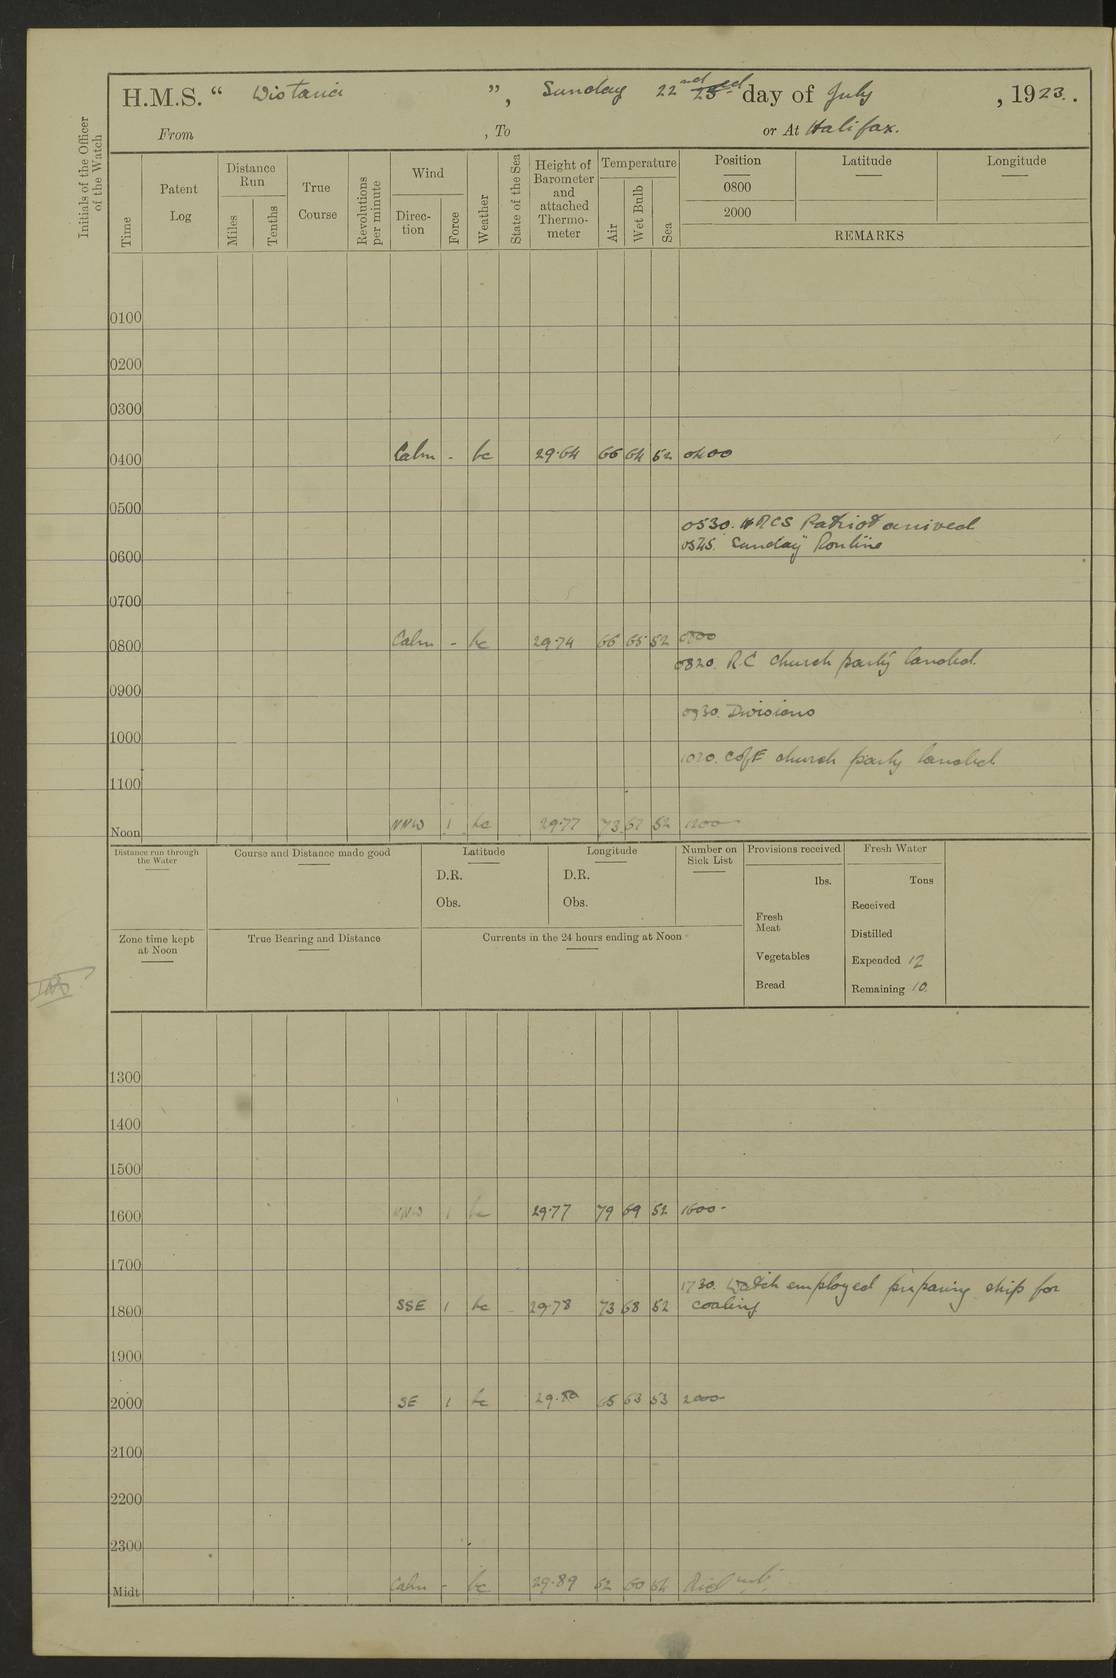 H.M.S. “ Wistaria ”, Sunday 22nd 23rd day of July , 1923.
From , To or At Halifax.
Initials of the Officer
of the Watch
Time
Patent
Log
Distance
Run
Miles
Tenths
True
Course
Revolutions
per minute
Wind
Direc-
tion
Force
Weather
State of the Sea
Height of
Barometer
and
attached
Thermo-
meter
Temperature
Air
Wet Bulb
Sea
Position Latitude Longitude
0800
2000
REMARKS
0100
0200
0300
0400 Calm - bc 29.64 66 64 52 0400
0500
0530. HMCS Patriot arrived
0545. Sunday Routine
0600
0700
0800 Calm - bc 29.74 66 65 52 0800
0820. RC church party landed.
0900
0930. Divisions
1000
1020. CofE church party landed
1100
Noon NNW 1 bc 29.77 73 67 52 1200
Distance run through
the Water
Course and Distance made good
Latitude
D.R.
Obs.
Longitude
D.R.
Obs.
Number on
Sick List
Provisions received
lbs.
Fresh
Meat
Vegetables
Bread
Fresh Water
Tons
Received
Distilled
Expended 12
Remaining 10.
Zone time kept
at Noon
True Bearing and Distance
Currents in the 24 hours ending at Noon
1300
1400
1500
1600 NNW 1 bc 29.77 79 69 52 1600-
1700
1730. Watch employed preparing ship for
coaling
1800 SSE 1 bc - 29.78 73 68 52
1900
2000 SE 1 bc 29.80 65 63 53 2000
2100
2200
2300
Midt Calm - bc 29.89 62 60 54